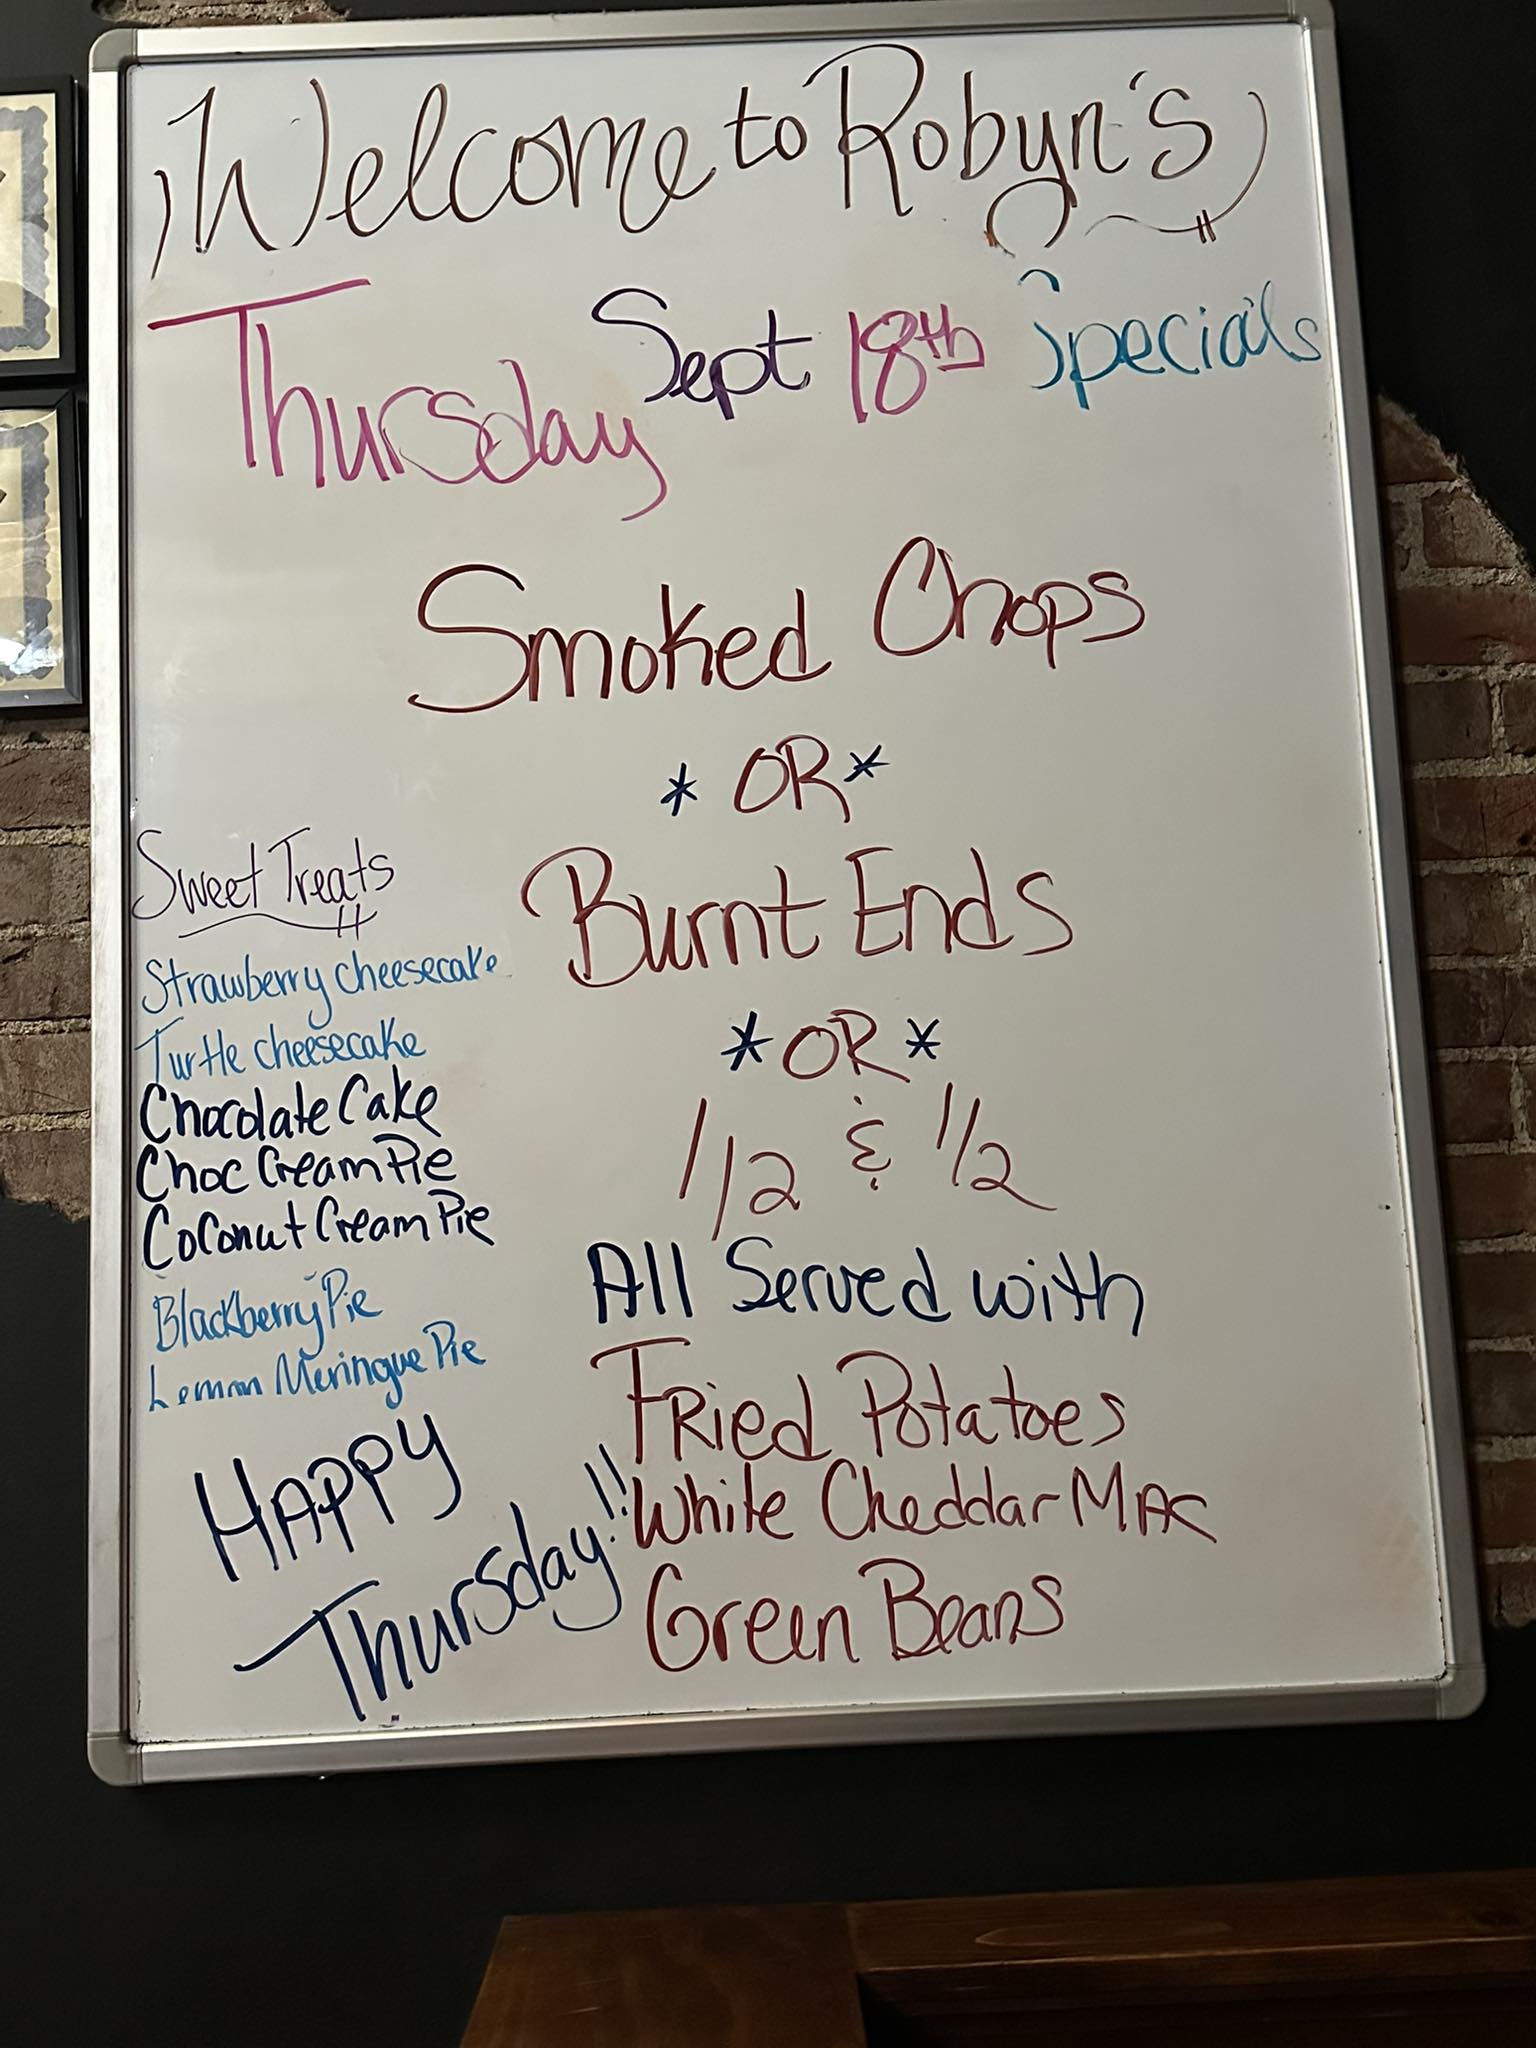 Welcome to Robyn's
Thursday Sept 18th Specials
Smoked Chops
* OR *
Burnt Ends
* OR *
1/2 & 1/2
All Served with
Fried Potatoes
White Cheddar Mac
Green Beans
Sweet Treats
Strawberry cheesecake
Turtle cheesecake
Chocolate Cake
Choc Cream Pie
Coconut Cream Pie
Blackberry Pie
Lemon Meringue Pie
HAPPY
Thursday!!